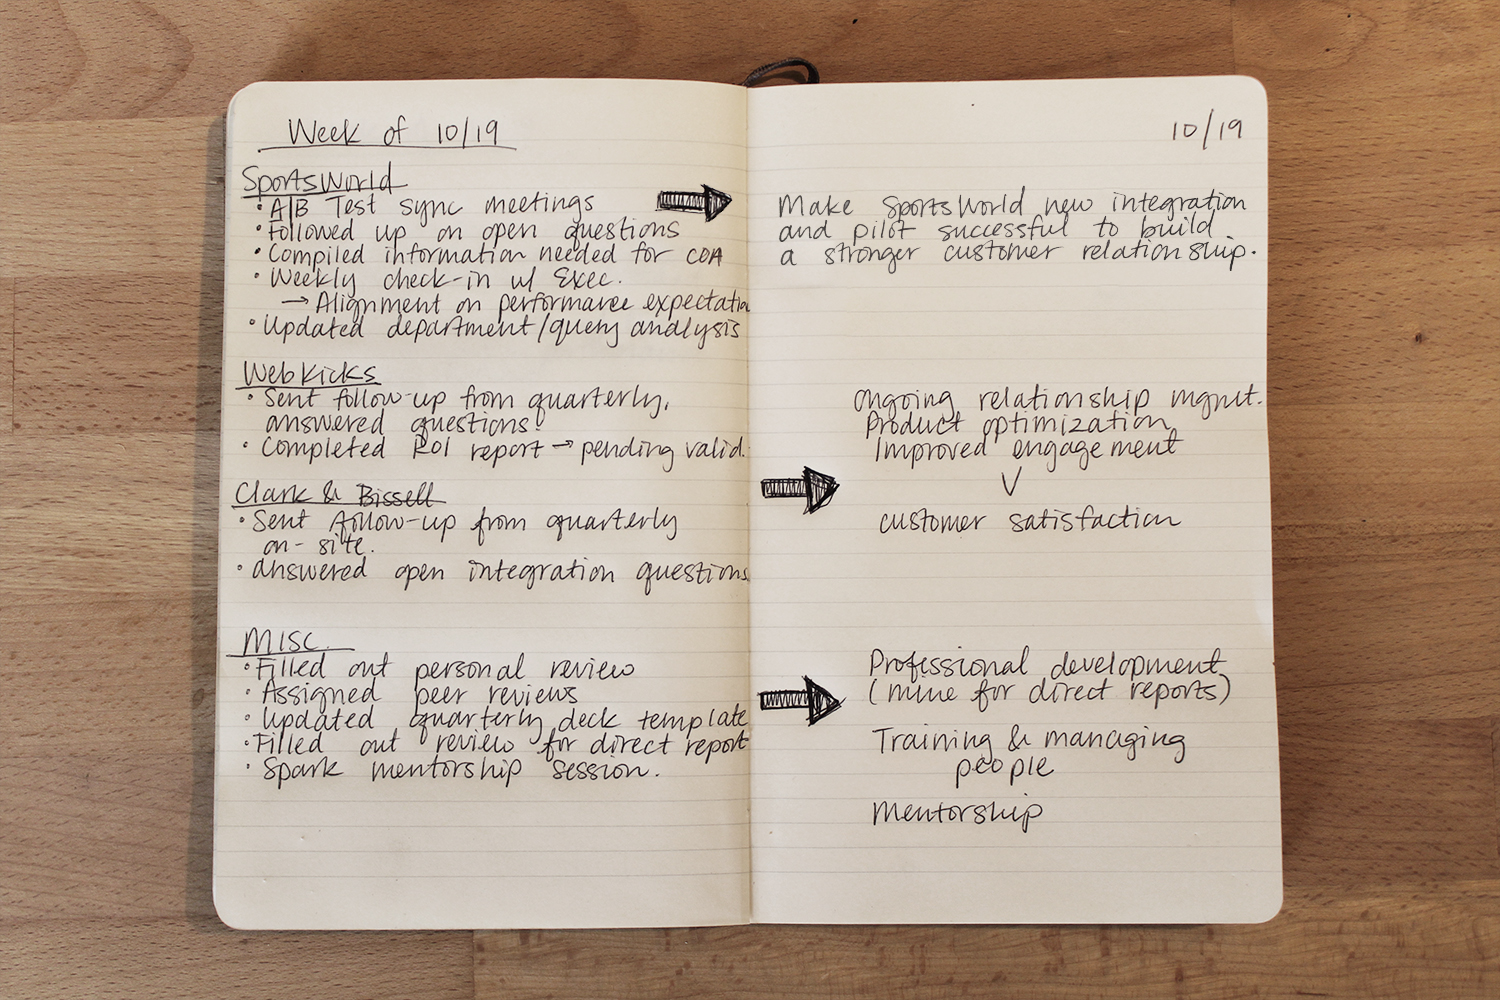 Week of 10/19
SportsWorld
• A/B Test sync meetings
• Followed up on open questions
• Compiled information needed for COA
• Weekly check-in w/ Exec.
→ Alignment on performance expectation
• Updated department/query analysis
WebKicks
• Sent follow-up from quarterly,
answered questions.
• Completed ROI report → pending valid.
Clark & Bissell
• Sent follow-up from quarterly
on-site.
• Answered open integration questions
MISC.
• Filled out personal review
• Assigned peer reviews
• Updated quarterly deck template
• Filled out review for direct report
• Spark mentorship session.
10/19
Make SportsWorld new integration
and pilot successful to build
a stronger customer relationship.
Ongoing relationship mgmt.
Product optimization
Improved engagement
customer satisfaction
Professional development
(mine for direct reports)
Training & managing
people
Mentorship